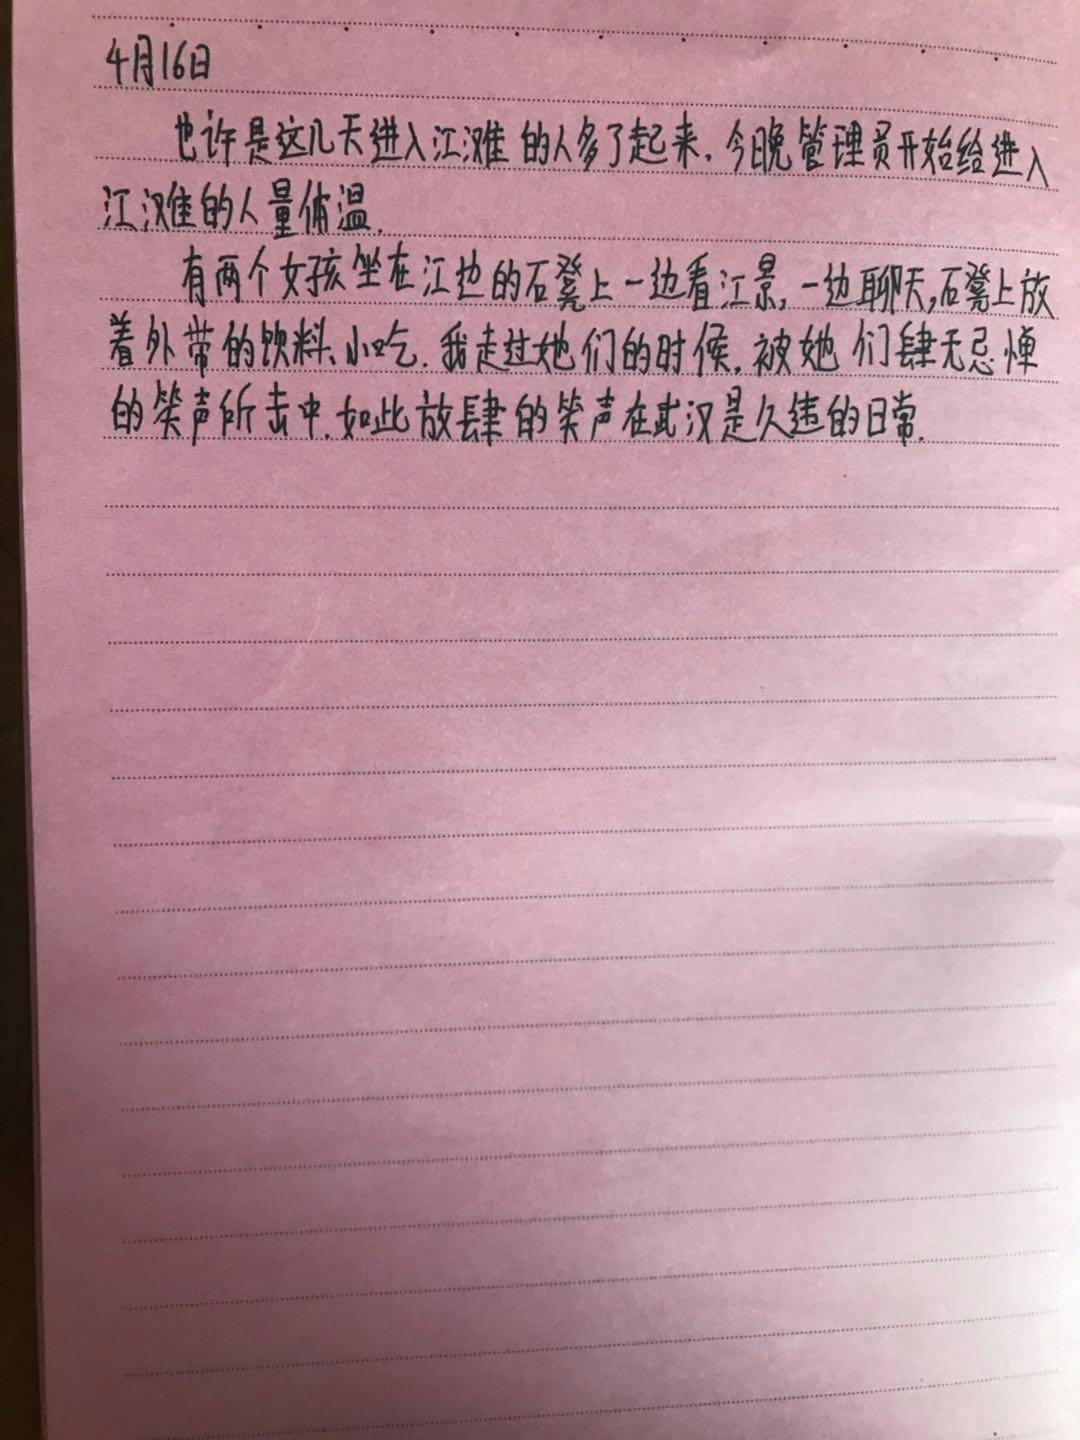 4月16日
也许是这几天进入江滩的人多了起来，今晚管理员开始给进入
江滩的人量体温.
有两个女孩坐在江边的石凳上一边看江景，一边聊天，石凳上放
着外带的饮料、小吃.我走过她们的时候，被她们肆无忌惮
的笑声所击中.如此放肆的笑声在武汉是久违的日常.